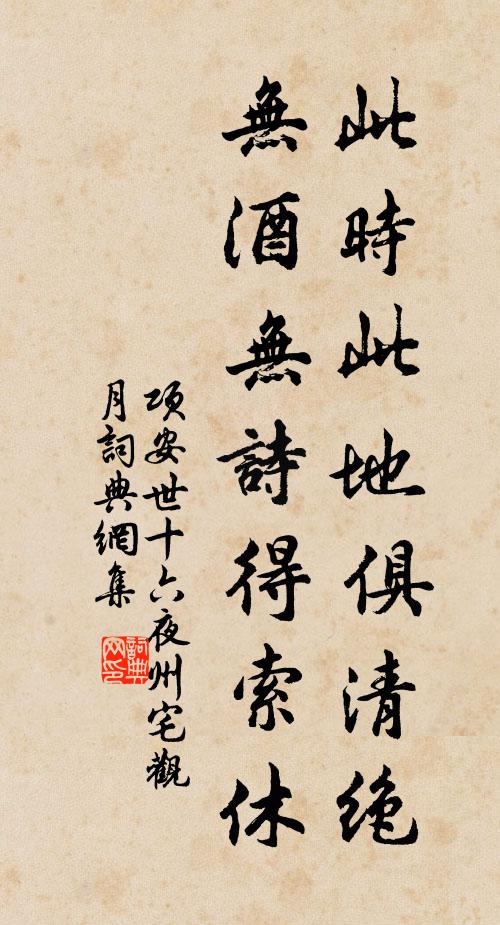 此時此地俱清絶
無酒無詩得索休
項安世十六夜州宅觀
月詞典網集
詞典
网印